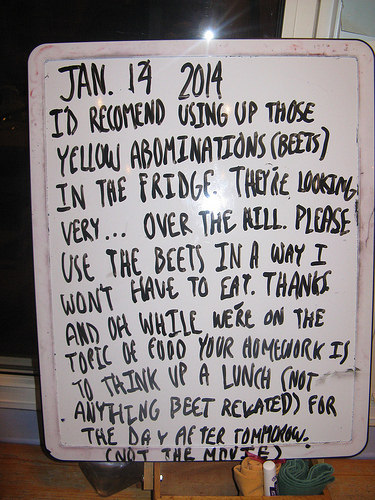 JAN. 14 2014
I'D RECOMEND USING UP THOSE
YELLOW ABOMINATIONS (BEETS)
IN THE FRIDGE. THEY'RE LOOKING
VERY... OVER THE HILL. PLEASE
USE THE BEETS IN A WAY I
WON'T HAVE TO EAT. THANKS
AND OH WHILE WE'RE ON THE
TOPIC OF FOOD YOUR HOMEWORK IS
TO THINK UP A LUNCH (NOT
ANYTHING BEET RELATED) FOR
THE DAY AFTER TOMMOROW.
(NOT THE MOVIE)